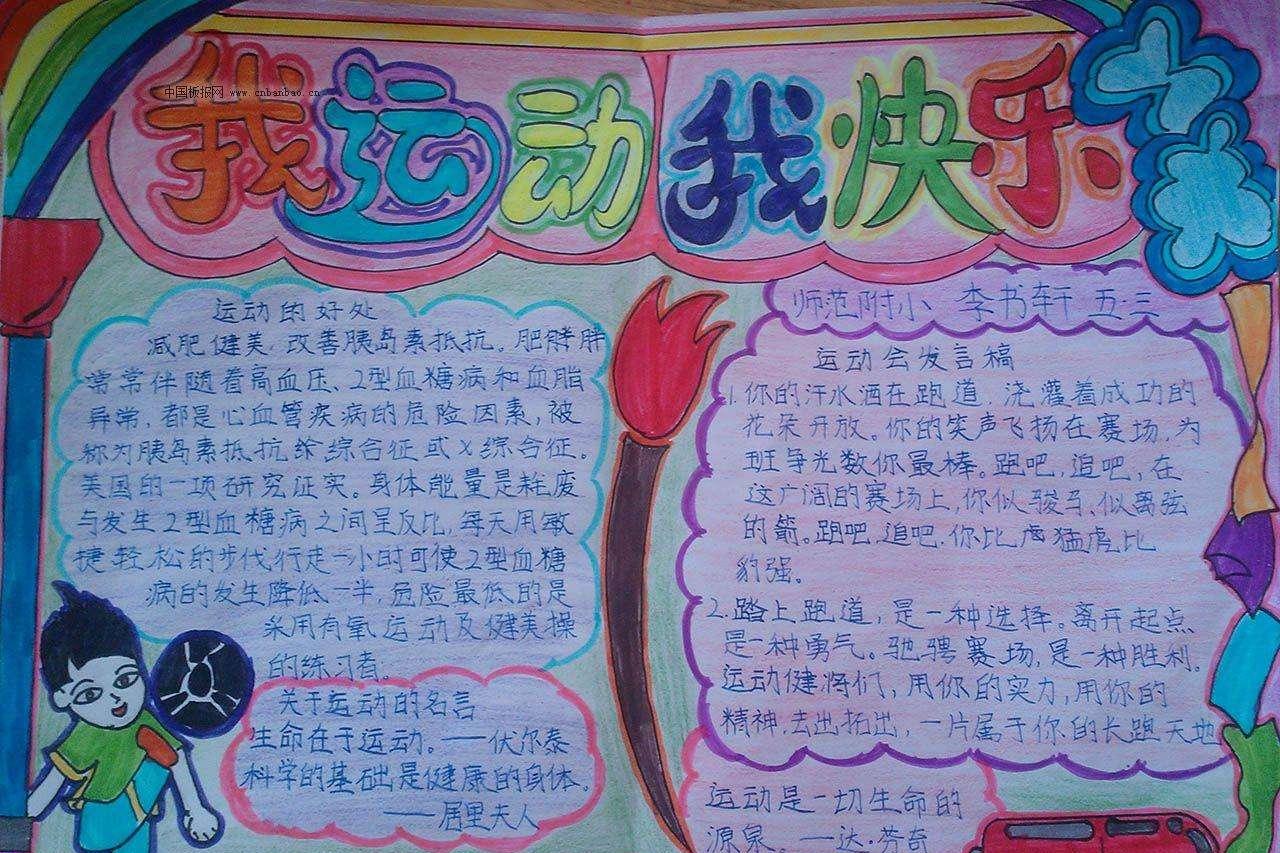 中国板报网 www.cnbanbao.cn
我运动 我快乐
运动的好处
减肥健美,改善胰岛素抵抗。肥胖
常常伴随着高血压、2型血糖病和血脂
异常,都是心血管疾病的危险因素,被
称为胰岛素抵抗综合征或X综合征。
美国的一项研究证实。身体能量是耗废
与发生2型血糖病之间呈反比,每天用敏
捷轻松的步伐行走一小时可使2型血糖
病的发生降低一半,危险最低的是
采用有氧运动及健美操
的练习者。
关于运动的名言
生命在于运动。——伏尔泰
科学的基础是健康的身体。
——居里夫人
师范附小 李书轩 五·三
运动会发言稿
1.你的汗水洒在跑道,浇灌着成功的
花朵开放。你的笑声飞扬在赛场,为
班争光数你最棒。跑吧,追吧,在
这广阔的赛场上,你似骏马,似离弦
的箭。跑吧,追吧,你比虎猛虎比
豹强。
2.踏上跑道,是一种选择。离开起点
是一种勇气。驰骋赛场,是一种胜利。
运动健将们,用你的实力,用你的
精神,去出拓出,一片属于你的长跑天地
运动是一切生命的
源泉。——达·芬奇